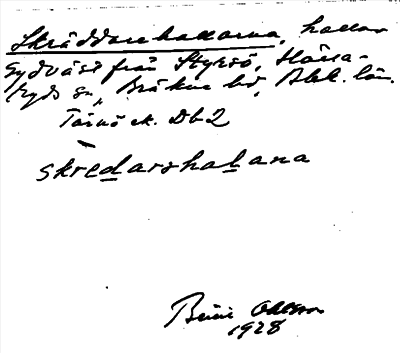 Skräddarehallarna, hallar
sydväst från Styrsö, Hälla-
ryds sn, Bräkne hd, Blek. län.
Tärnö ek. Db2
skredarshalana
Ohlsson
1928